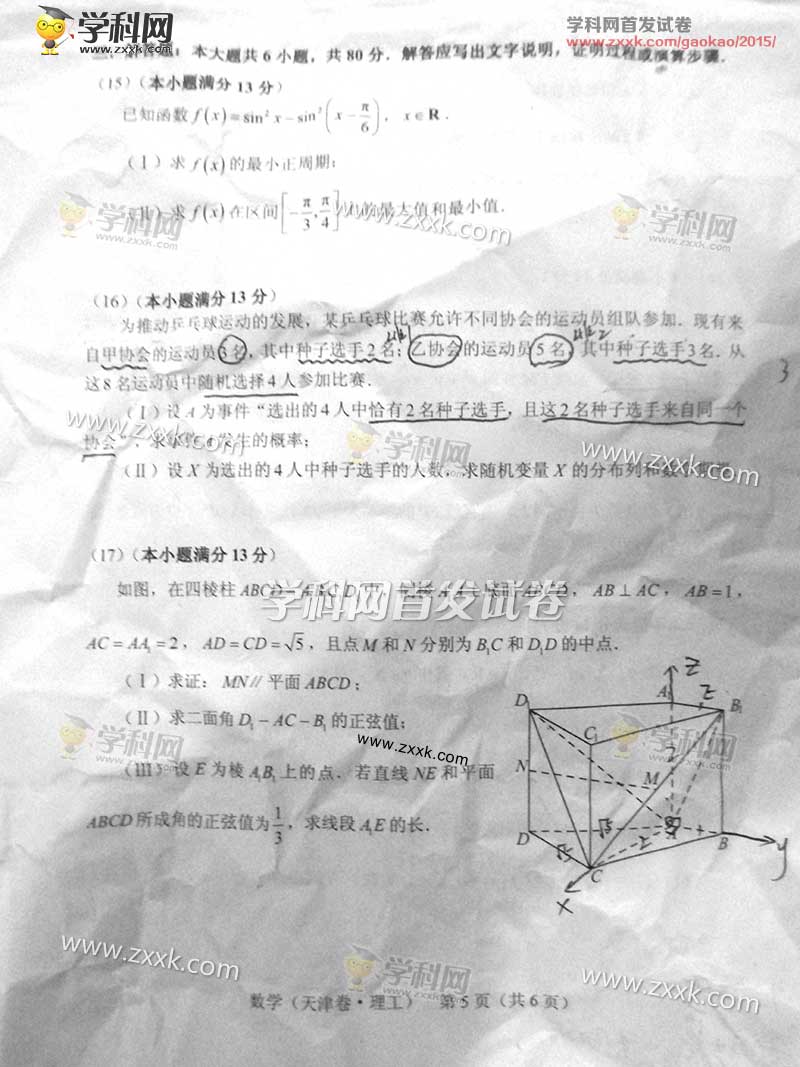 学科网
WWW.ZXXK.COM
学科网首发试卷
www.zxxk.com/gaokao/2015/
本大题共6小题，共80分．解答应写出文字说明，证明过程或演算步骤．
(15)（本小题满分13分）
已知函数 f(x)=sin²x−sin²(x−π/6)，x∈R．
(Ⅰ) 求 f(x) 的最小正周期；
(Ⅱ) 求 f(x) 在区间[−π/3, π/4]内的最大值和最小值．
学科网
www.zxxk.com
学科网
www.zxxk.com
(16)（本小题满分13分）
为推动乒乓球运动的发展，某乒乓球比赛允许不同协会的运动员组队参加．现有来
自甲协会的运动员3名，其中种子选手2名；乙协会的运动员5名，其中种子选手3名．从
这8名运动员中随机选择4人参加比赛．
3
(Ⅰ) 设 A 为事件“选出的4人中恰有2名种子选手，且这2名种子选手来自同一个
协会”，求事件 A 发生的概率；
www.zxxk.com
学科网
www.zxxk.com
(Ⅱ) 设 X 为选出的4人中种子选手的人数，求随机变量 X 的分布列和数学期望．
(17)（本小题满分13分）
学科网首发试卷
如图，在四棱柱 ABCD ABCD，AB⊥AC，AB=1，
AC=AA₁=2，AD=CD=√5，且点 M 和 N 分别为 B₁C 和 D₁D 的中点．
(Ⅰ) 求证：MN∥平面 ABCD；
(Ⅱ) 求二面角 D₁−AC−B₁ 的正弦值；
(Ⅲ) 设 E 为棱 A₁B₁ 上的点．若直线 NE 和平面
ABCD 所成角的正弦值为 1/3，求线段 A₁E 的长．
学科网
www.zxxk.com
www.zxxk.com
z
D₁
A₁
z
B₁
C₁
2
N
M
D
√5
A
B
√5
2
1
C
x
y
www.zxxk.com
学科网
www.zxxk.com
www.zxxk.com
数学（天津卷·理工） 第5页（共6页）